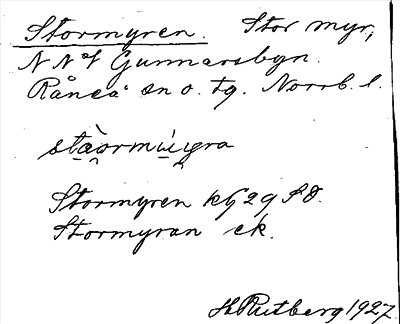 Stormyren. Stor myr,
NNV Gunnarsbyn.
Råneå sn o. tg. Norrb. l.
Stormyren
Stormyran ek.
H Rutberg 1927